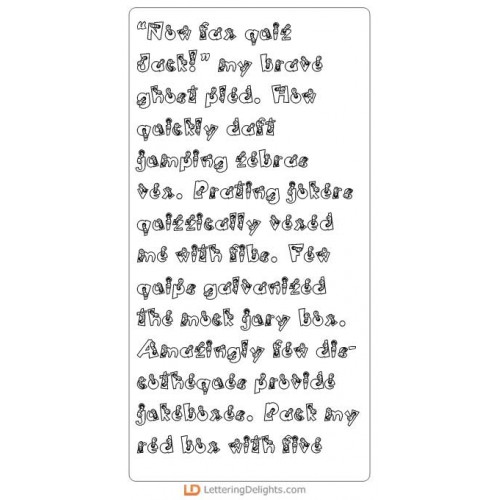 "Now fax quiz
Jack!" my brave
ghost pled. How
quickly daft
jumping zebras
vex. Prating jokers
quizzically vexed
me with fibs. Few
quips galvanized
the mock jury box.
Amazingly few dis-
cotheques provide
jukeboxes. Pack my
red box with five
LD LetteringDelights.com